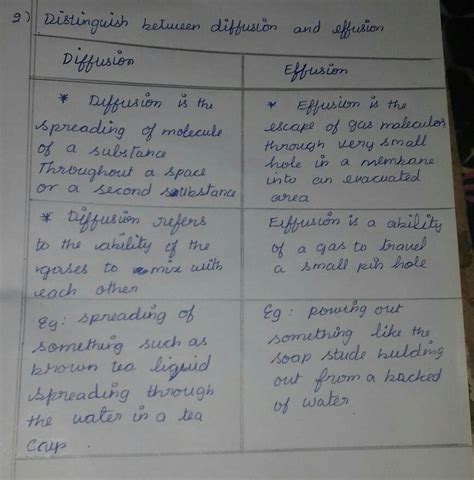 2) Distinguish between diffusion and effusion
Diffusion
* Diffusion is the
spreading of molecule
of a substance
Throughout a space
or a second substance
* Diffusion refers
to the ability of the
gases to mix with
each other
Eg: spreading of
something such as
brown tea liquid
spreading through
the water in a tea
coup
Effusion
* Effusion is the
escape of gas molecular
through very small
hole in a memkane
into an evacuated
area
Eiffusion is a ability
of a gas to travel
a small pin hole
Eg: powing out
something like the
soap stude building
out from a backed
of water